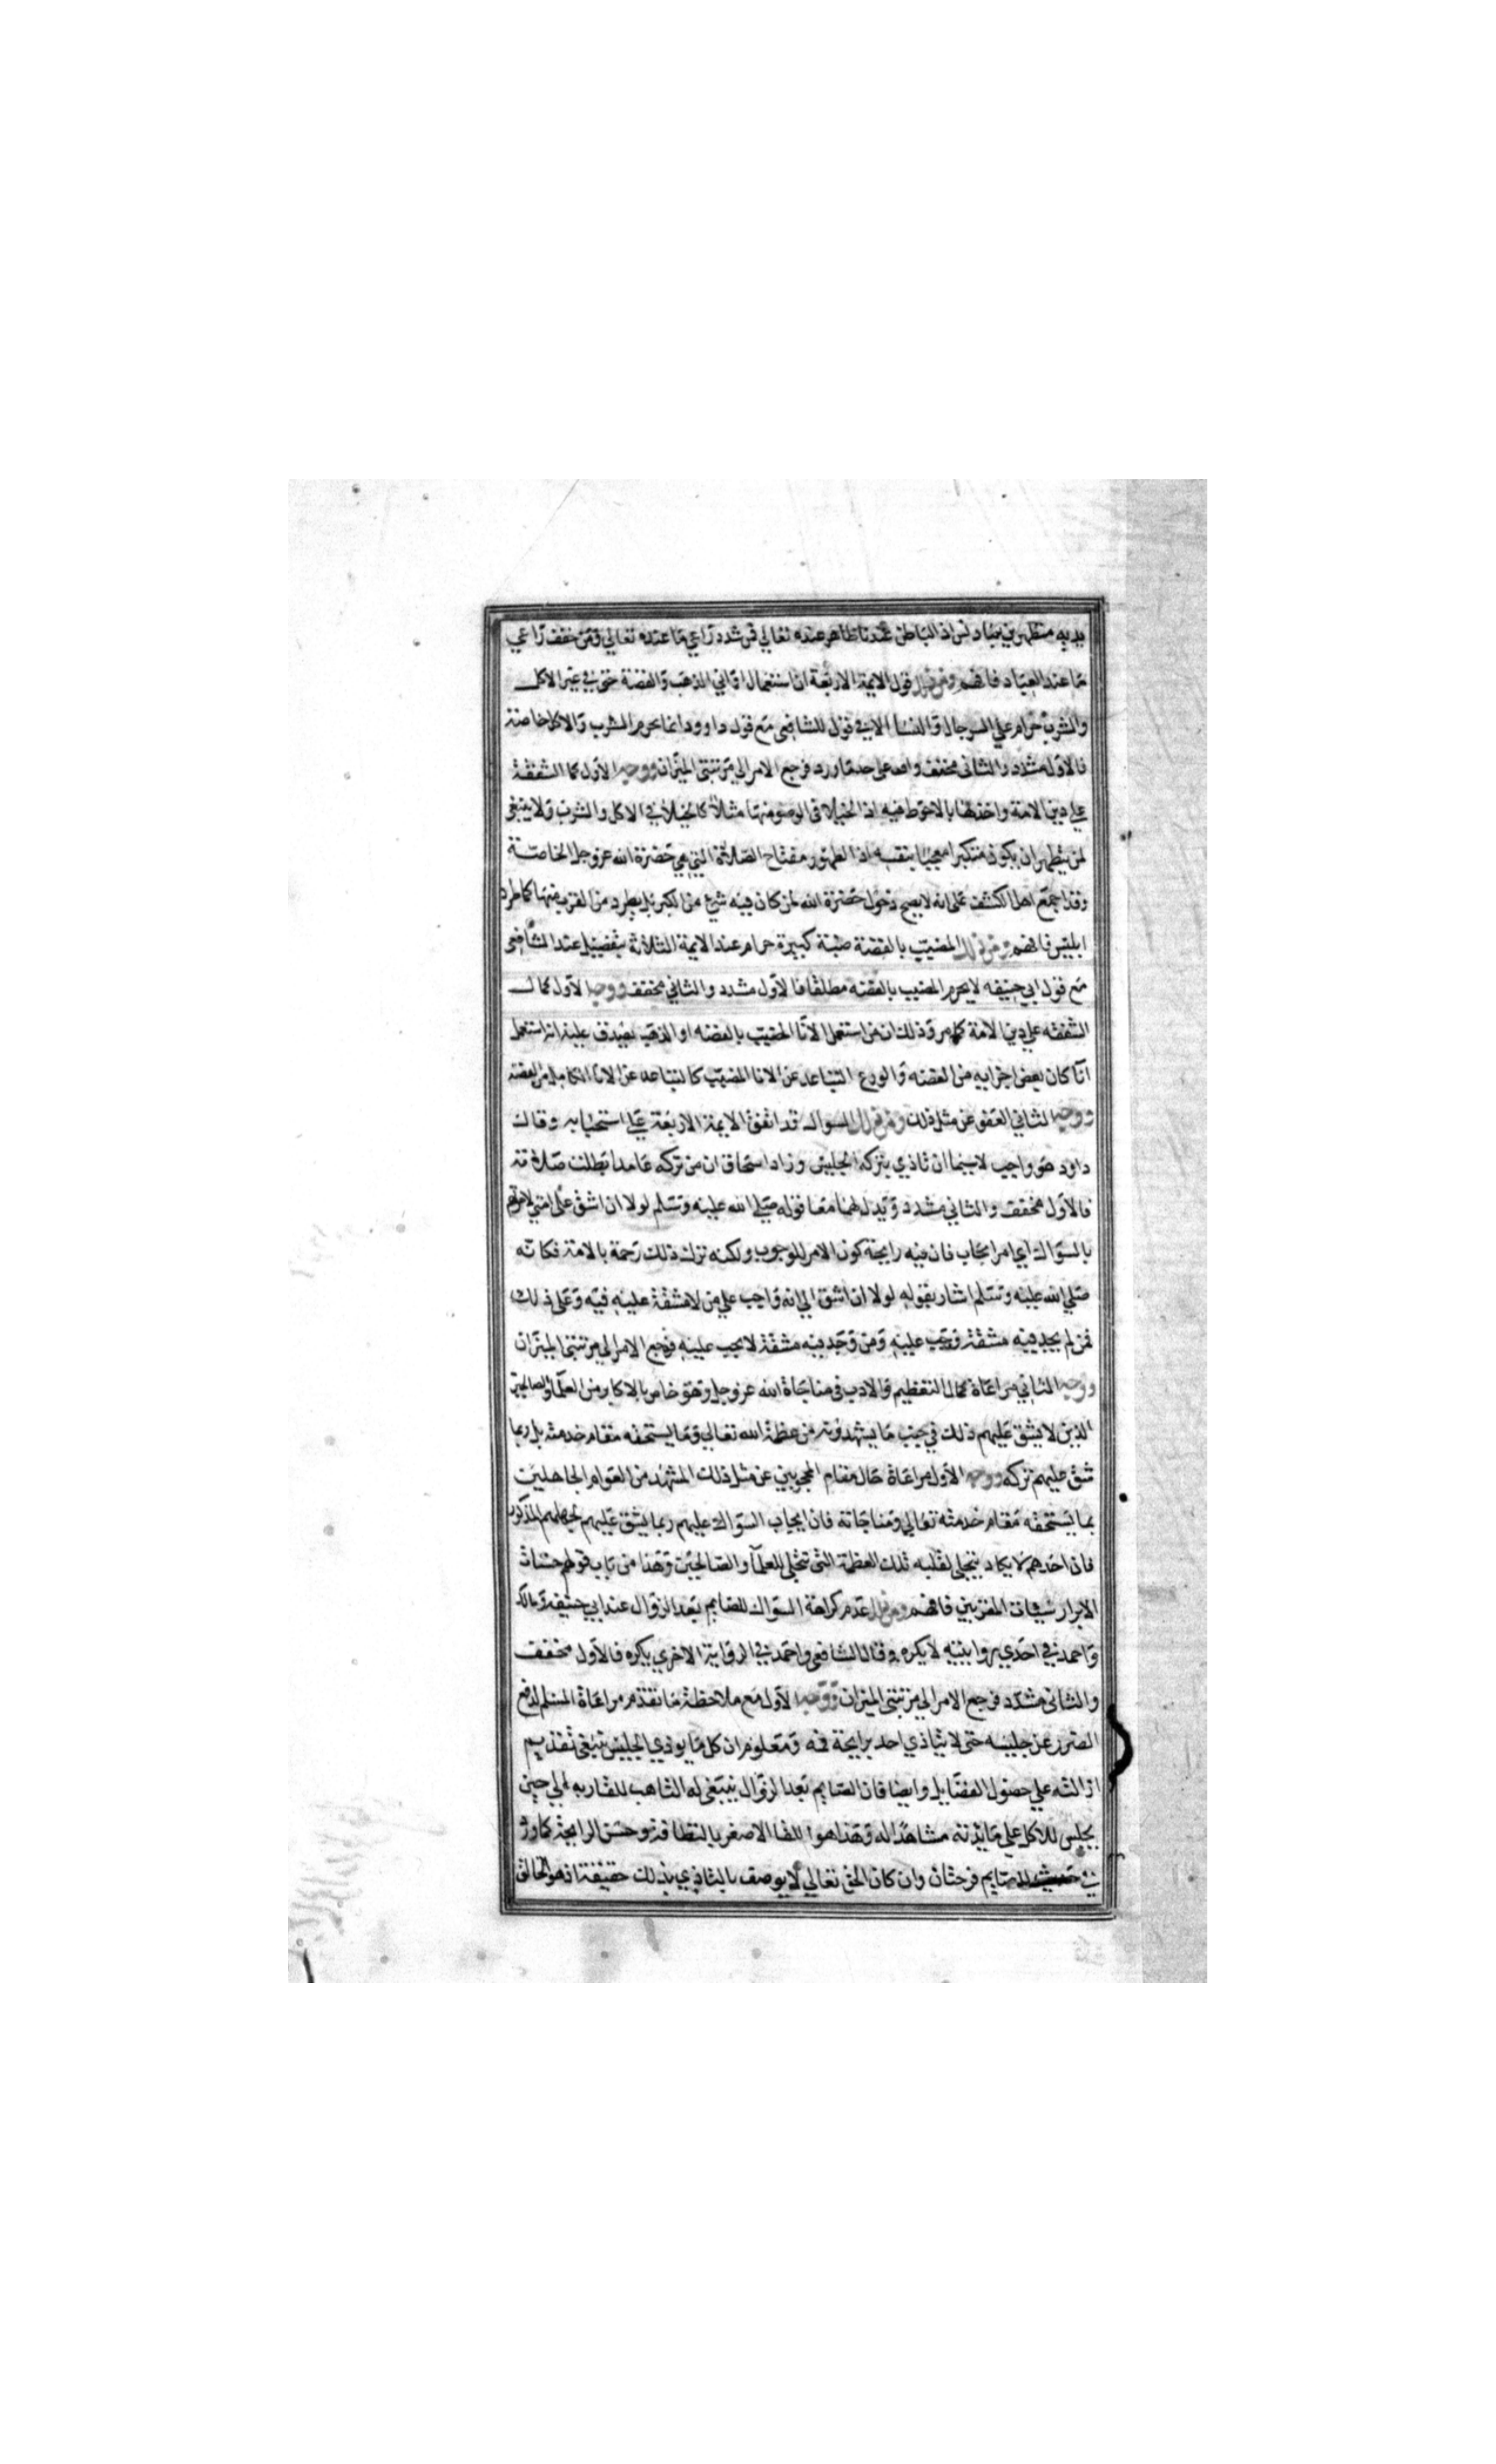 يديه متطهرين ثياب ... اذ الباطن عندنا ظاهر عنده تعالي فمن شدد راعي ما عنده تعالي ومن خفف راعي
ما عند العباد فافهم ومن ذلك قول الايمة الاربعة ان استعمال اواني الذهب والفضة حتي في غير الاكل
والشرب حرام علي الرجال والنسا الا في قول للشافعي مع قول داوود انما يحرم الشرب والاكل خاصة
فالاول مشدد والثاني مخفف واقف علي حد ما ورد فرجع الامر الي مرتبتي الميزان ووجه الاول كمال الشفقة
علي دين الامة واخذها بالاحوط فيه اذ الخيلا في الوضو منها مثلا كالخيلا في الاكل والشرب ولا ينبغي
لمن يتطهر ان يكون متكبرا معجبا بنفسه اذ الطهور مفتاح الصلاة التي هي حضرة الله عز وجل الخاصة
وقد اجمع اهل الكشف علي انه لا يصح دخول حضرة الله لمن كان فيه شي من الكبر بل يطرد من القرب منها كما طرد
ابليس فافهم ومن ذلك المضبب بالفضة ضبة كبيرة حرام عند الايمة الثلاثة بتفصيل عند الشافعي
مع قول ابي حنيفه لا يحرم المضبب بالفضه مطلقا فالاول مشدد والثاني مخفف ووجه الاول كمال
الشفقه علي دين الامة كما مر وذلك ان من استعمل الانا المضبب بالفضه او الذهب يصدق عليه انه استعمل
انا كان بعض اجزايه من الفضه والورع التباعد عن الانا المضبب كالتباعد عن الانا الكامل من الفضة
ووجه الثاني العفو عن مثل ذلك ومن ذلك السواك قد اتفق الايمة الاربعة علي استحبابه وقال
داود هو واجب لا سيما ان تاذي بتركه الجليس وزاد اسحاق ان من تركه عامدا بطلت صلاته
فالاول مخفف والثاني مشدد ويدل لهما معا قوله صلي الله عليه وسلم لولا ان اشق علي امتي لامرتهم
بالسواك اي امر ايجاب فان فيه رايحة كون الامر للوجوب ولكنه ترك ذلك رحمة بالامة فكانه
صلي الله عليه وسلم اشار بقوله لولا ان اشق الي انه واجب علي من لا مشقة عليه فيه وعلي ذلك
فمن لم يجد فيه مشقة وجب عليه ومن وجد فيه مشقة لا يجب عليه فرجع الامر الي مرتبتي الميزان
ووجه الثاني مراعاة كمال التعظيم والادب في مناجاة الله عز وجل وهو خاص بالاكابر من العلما والصالحين
الذين لا يشق عليهم ذلك في جنب ما يشهدونه من عظمة الله تعالي وما يستحقه مقام خدمته بل ربما
شق عليهم تركه ووجه الاول مراعاة حال مقام المحجوبين عن مثل ذلك المشهد من العوام الجاهلين
بما يستحقه مقام خدمته تعالي ومناجاته فان ايجاب السواك عليهم ربما يشق عليهم لجهلهم المذكور
فان احدهم لا يكاد يتجلي لقلبه تلك العظمة التي تتجلي للعلما والصالحين وهذا من باب قولهم حسنات
الابرار سيئات المقربين فافهم ومن ذلك عدم كراهة السواك للصايم بعد الزوال عند ابي حنيفة ومالك
واحمد في احدي روايتيه لا يكره وقال الشافعي واحمد في الرواية الاخري يكره فالاول مخفف
والثاني مشدد فرجع الامر الي مرتبتي الميزان ووجه الاول مع ملاحظة ما تقدم مراعاة المسلم لدفع
الضرر عن جليسه حتي لا يتاذي احد برايحة فمه ومعلوم ان كل ما يوذي الجليس ينبغي تقديم
ازالته علي حصول الفضايل وايضا فان الصايم بعد الزوال ينبغي له التاهب للقا ربه الي حين
يجلس للاكل علي مايدته مشاهدا له وهذا هو اللقا الاصغر بالنظافة وحسن الرايحة كما ورد
للصايم فرحتان وان كان الحق تعالي لا يوصف بالتاذي بذلك حقيقة اذ هو الخالق